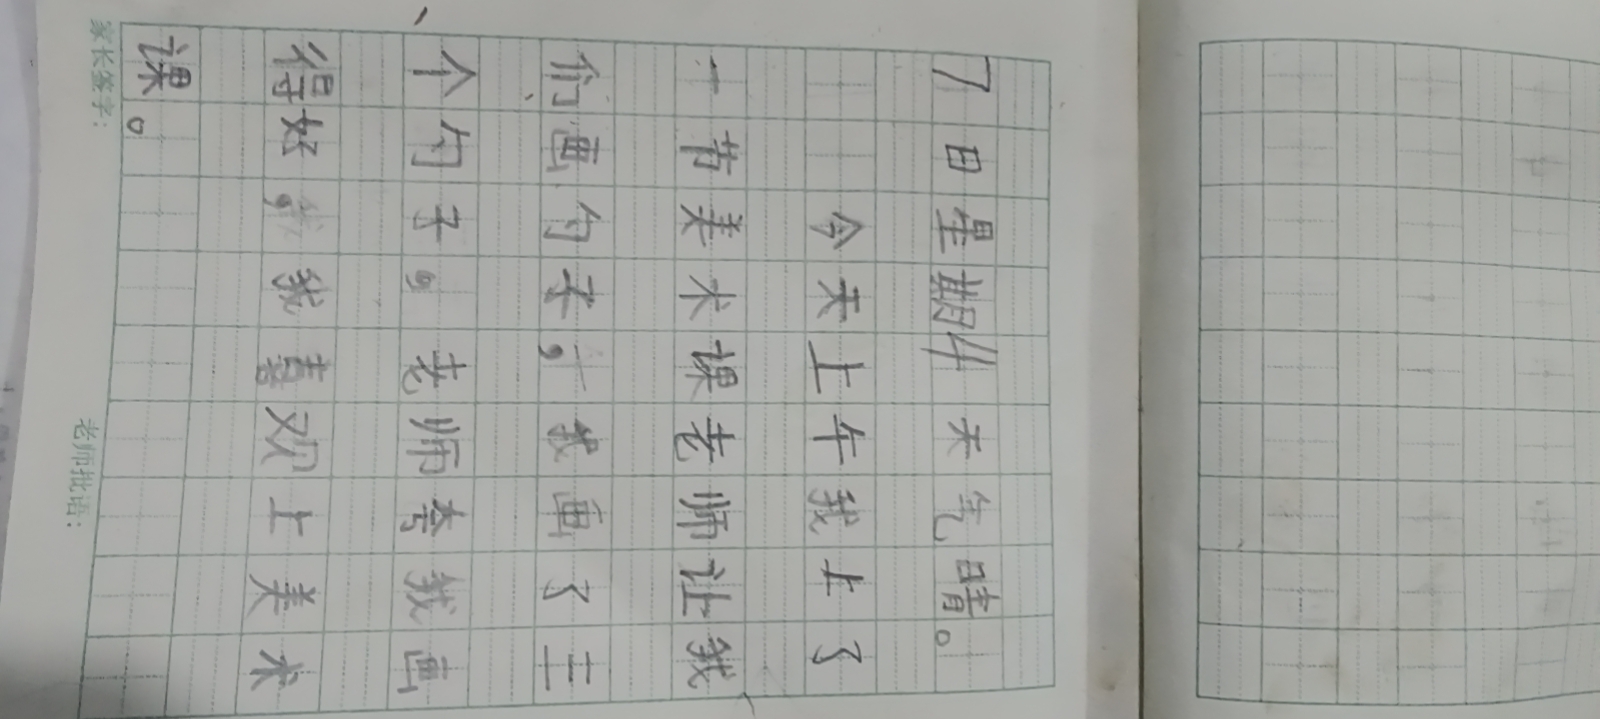 7日星期 天气晴。
今天上午我上了
一节美术课老师让我
们画句子，我画了三
个句子。老师夸我画
得好，我喜欢上美术
课。
家长签字： 老师批语：